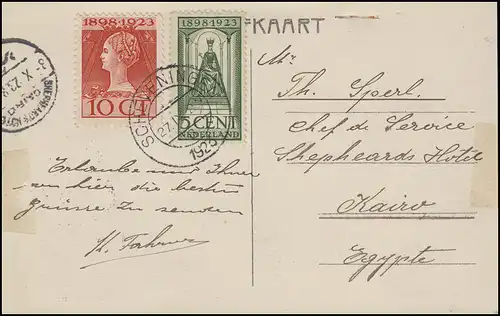 KAART
1898-1923
10 CT
1898-1923
5 CENT
NEDERLAND
SCHEVENINGEN
27.
1923
Mr
Th. Sperl.
chef de Service
Shepheards Hotel
Kairo
Egypte
Erlaube mir Ihnen
von hier die besten
grüsse zu senden